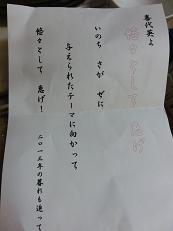 喜代英よ
悠々として 急げ
いのち さが ぜに
与えられたテーマに向かって
悠々として 急げ！
二〇一三年の暮れも迫って